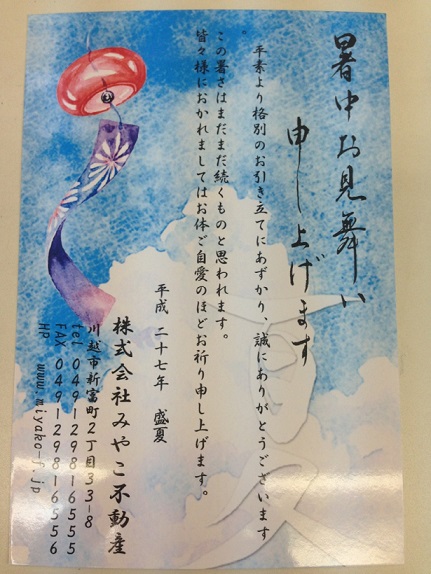 暑中お見舞い
申し上げます
平素より格別のお引き立てにあずかり、誠にありがとうございます
。
この暑さはまだまだ続くものと思われます。
皆々様におかれましてはお体ご自愛のほどお祈り申し上げます。
平成 二十七年 盛夏
株式会社みやこ不動産
川越市新富町2丁目33-8
tel 049-298-6555
FAX 049-298-6556
HP www.miyako-f.jp
夏